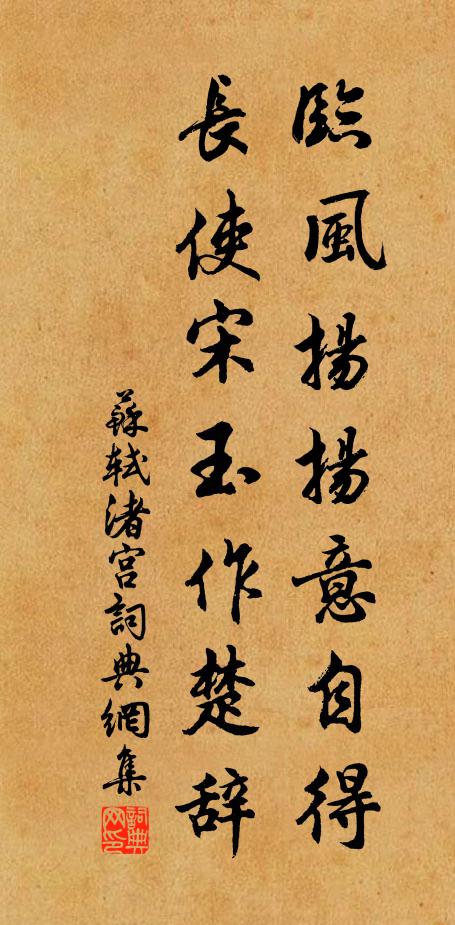 臨風揚揚意自得
長使宋玉作楚辞
蘇軾渚宫詞典網集
詞典网印